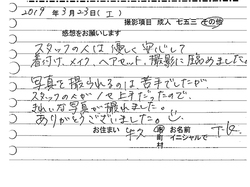 2019年3月23日(土)
撮影項目 成人 七五三 その他
感想をお願いします
スタッフの人は優しく安心して
着付け、メイク、ヘアセット、撮影に臨めました。
写真を撮られるのは苦手でしたが、
スタッフの人が上手だったので
きれいな写真が撮れました。
ありがとうございました。
お住まい 牛久 市町村 お名前 イニシャルで T.K